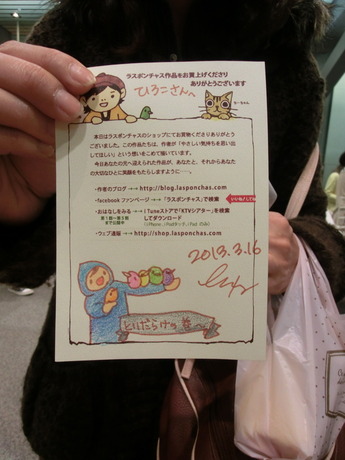 ラスポンチャス作品をお買上げくださり
ありがとうございます
ひろこさんへ
本日はラスポンチャスのショップにてお買物くださりありがとう
ございました。この作品たちは、作者が「やさしい気持ちを思い出
してほしい」という想いをこめて描いています。
今日あなたの元へ迎えられた作品が、あなたと、それからあなた
の大切なひとに笑顔をもたらしますように――。
・作者のブログ ・・→ http://blog.lasponchas.com
・facebook ファンページ ・・→「ラスポンチャス」で検索
・おはなしをみる ・・→ iTuneストアで「XTVシアター」を検索
してダウンロード
・ウェブ通販 ・・→ http://shop.lasponchas.com
2013.3.16
とりだらけの巻へ